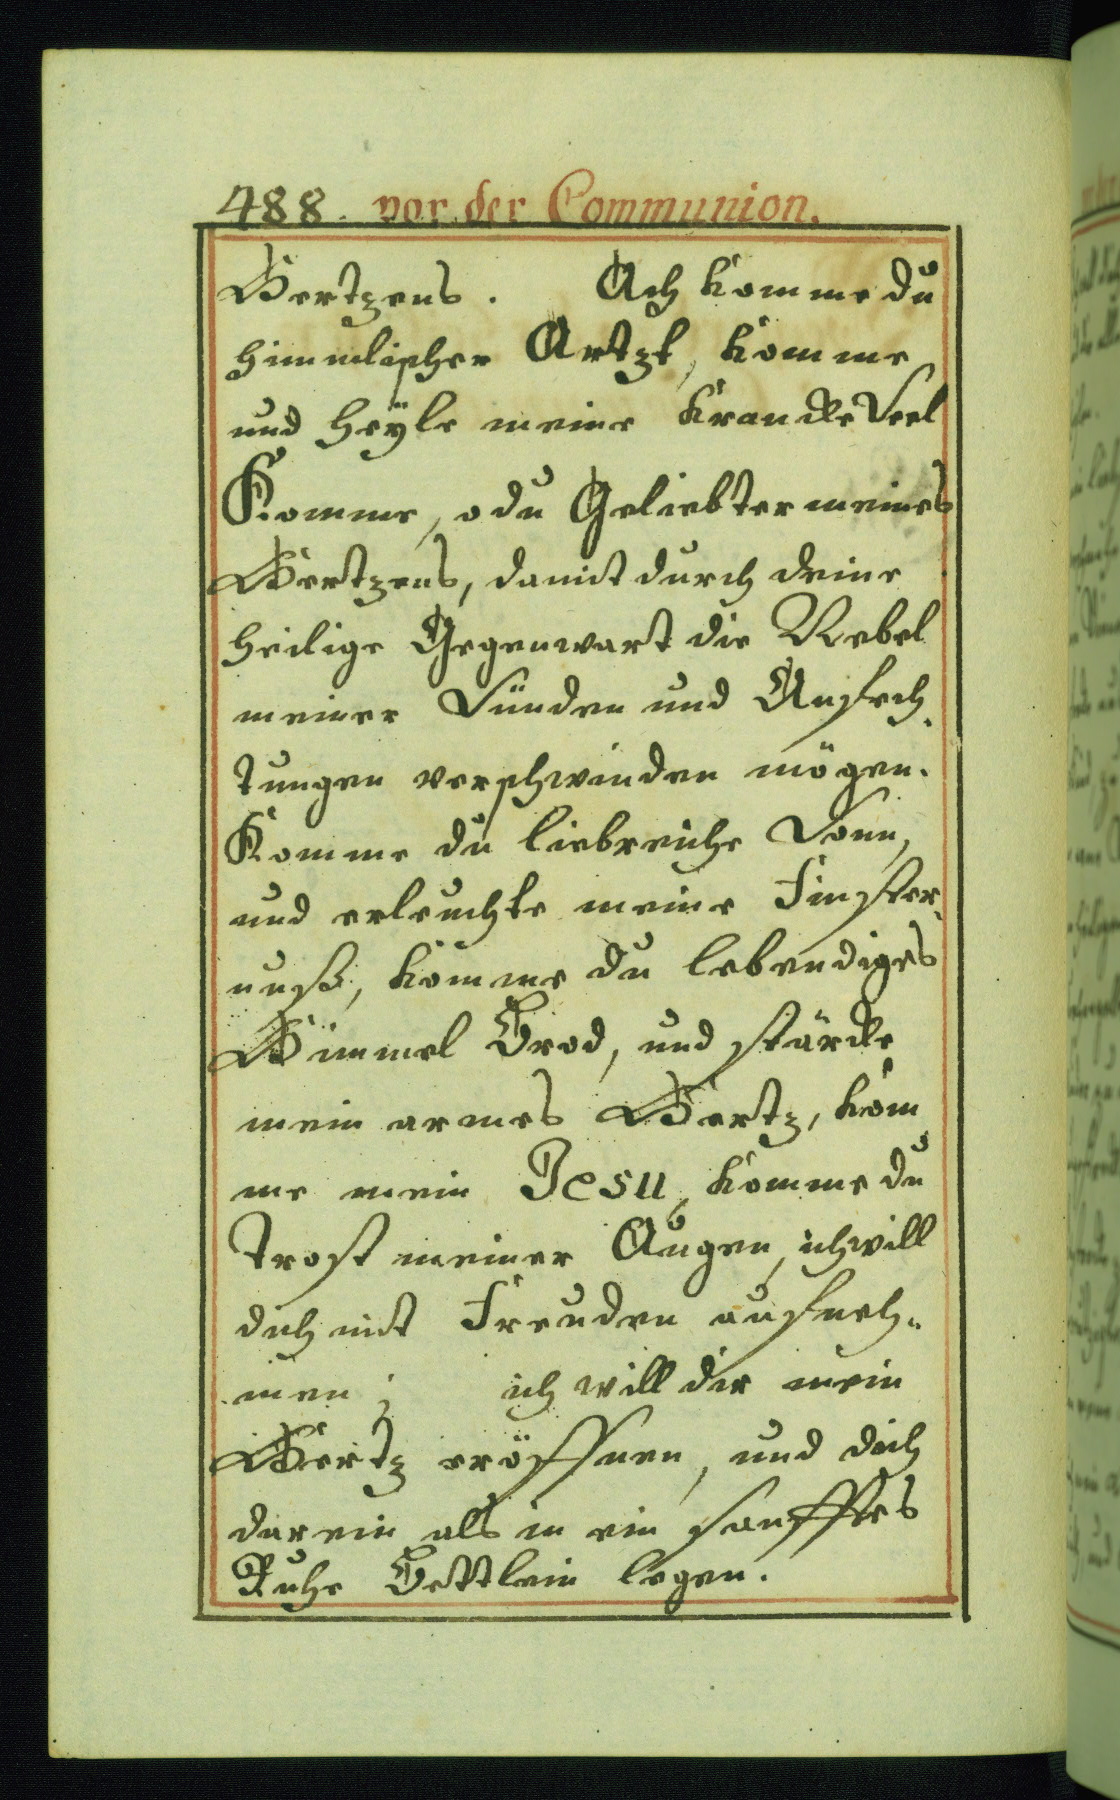 488. vor der Communion.
Hertzens. Ach komme du
himmlischer Artzt, komme
und heÿle meine krancke Seel
Komme, o du Geliebter meines
Hertzens, damit durch deine
heilige Gegenwart die Nebel
meiner Sünden und Anfech-
tungen verschwinden mögen.
Komme du liebreiche Sonn,
und erleuchte meine Finster-
nuß, komme du lebendiges
Himmel Brod, und stärcke
mein armes Hertz, kom
me mein Jesu, komme du
Trost meiner Augen, ich will
dich mit Freuden aufneh-
men; ich will dir mein
Hertz eröffnen, und dich
darein als in ein sanfftes
Ruhe Bettlein legen.